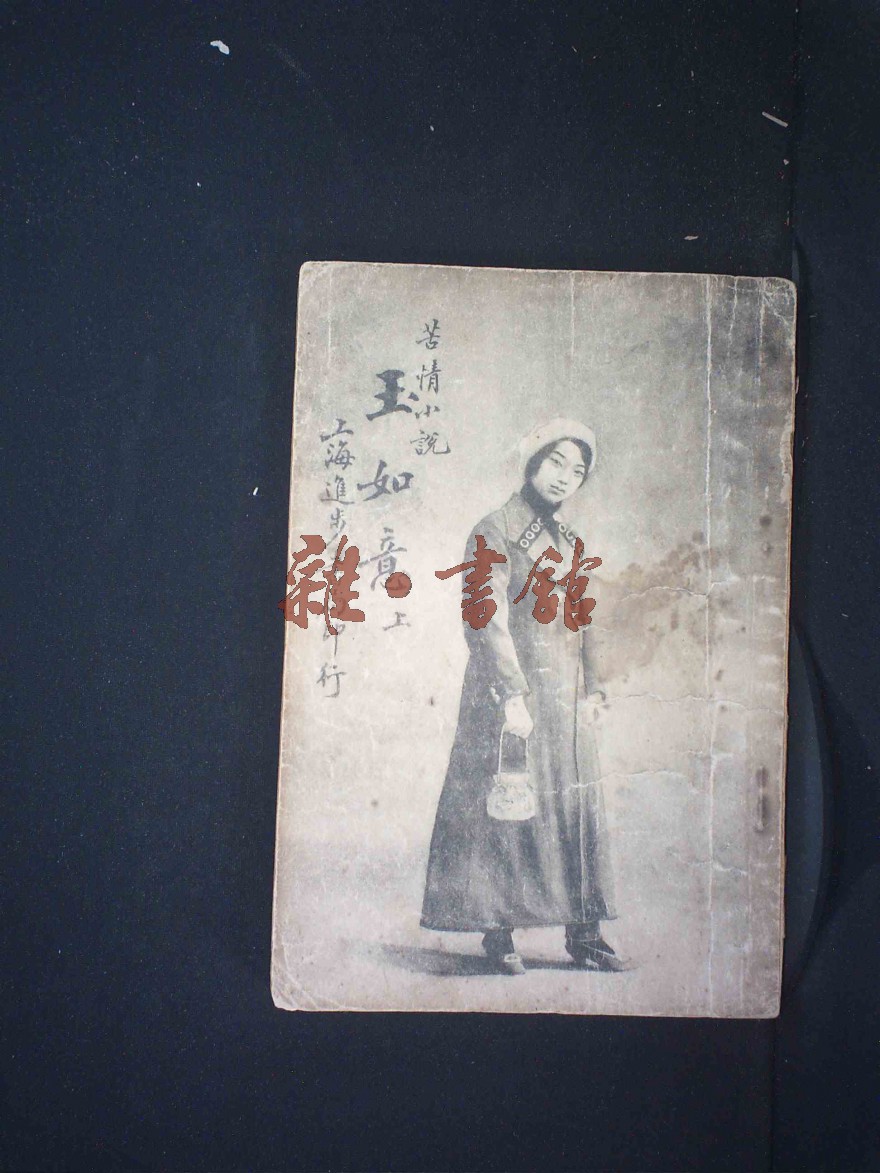 苦情小說
玉如意上
上海進步書局印行
雜·書館